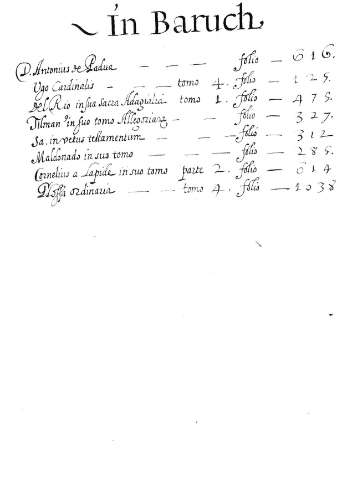 ~ In Baruch
D. Antonius de Padua — — — folio — 616.
Ugo Cardinalis — — — tomo 4. folio — 125.
del Rio in sua sacra Adagialia tomo 1. folio — 475.
Tilman in suo tomo Allegoriarũ — — folio — 327.
Sa. in vetus testamentum — — — folio — 312
Maldonado in suo tomo — — — folio — 285.
Cornelius a Lapide in suo tomo parte 2. folio — 614
ordinaria — — tomo 4. folio — 1038